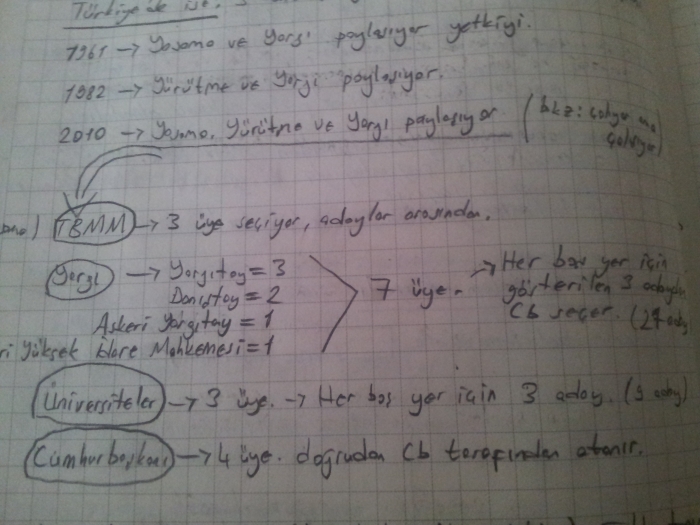 Türkiye'de ise.
1961 → Yasama ve Yargı paylaşıyor yetkiyi.
1982 → Yürütme ve Yargı paylaşıyor.
2010 → Yasama, Yürütme ve Yargı paylaşıyor (bkz: çalıyor ama
çalışıyor)
TBMM → 3 üye seçiyor, adaylar arasından.
Yargı → Yargıtay = 3
Danıştay = 2
Askeri Yargıtay = 1
Yüksek İdare Mahkemesi = 1
7 üye. → Her boş yer için
gösterilen 3 adaydan
Cb seçer. (21 aday
Üniversiteler → 3 üye. → Her boş yer için 3 aday. (9 aday)
Cumhurbaşkanı → 4 üye. doğrudan Cb tarafından atanır.